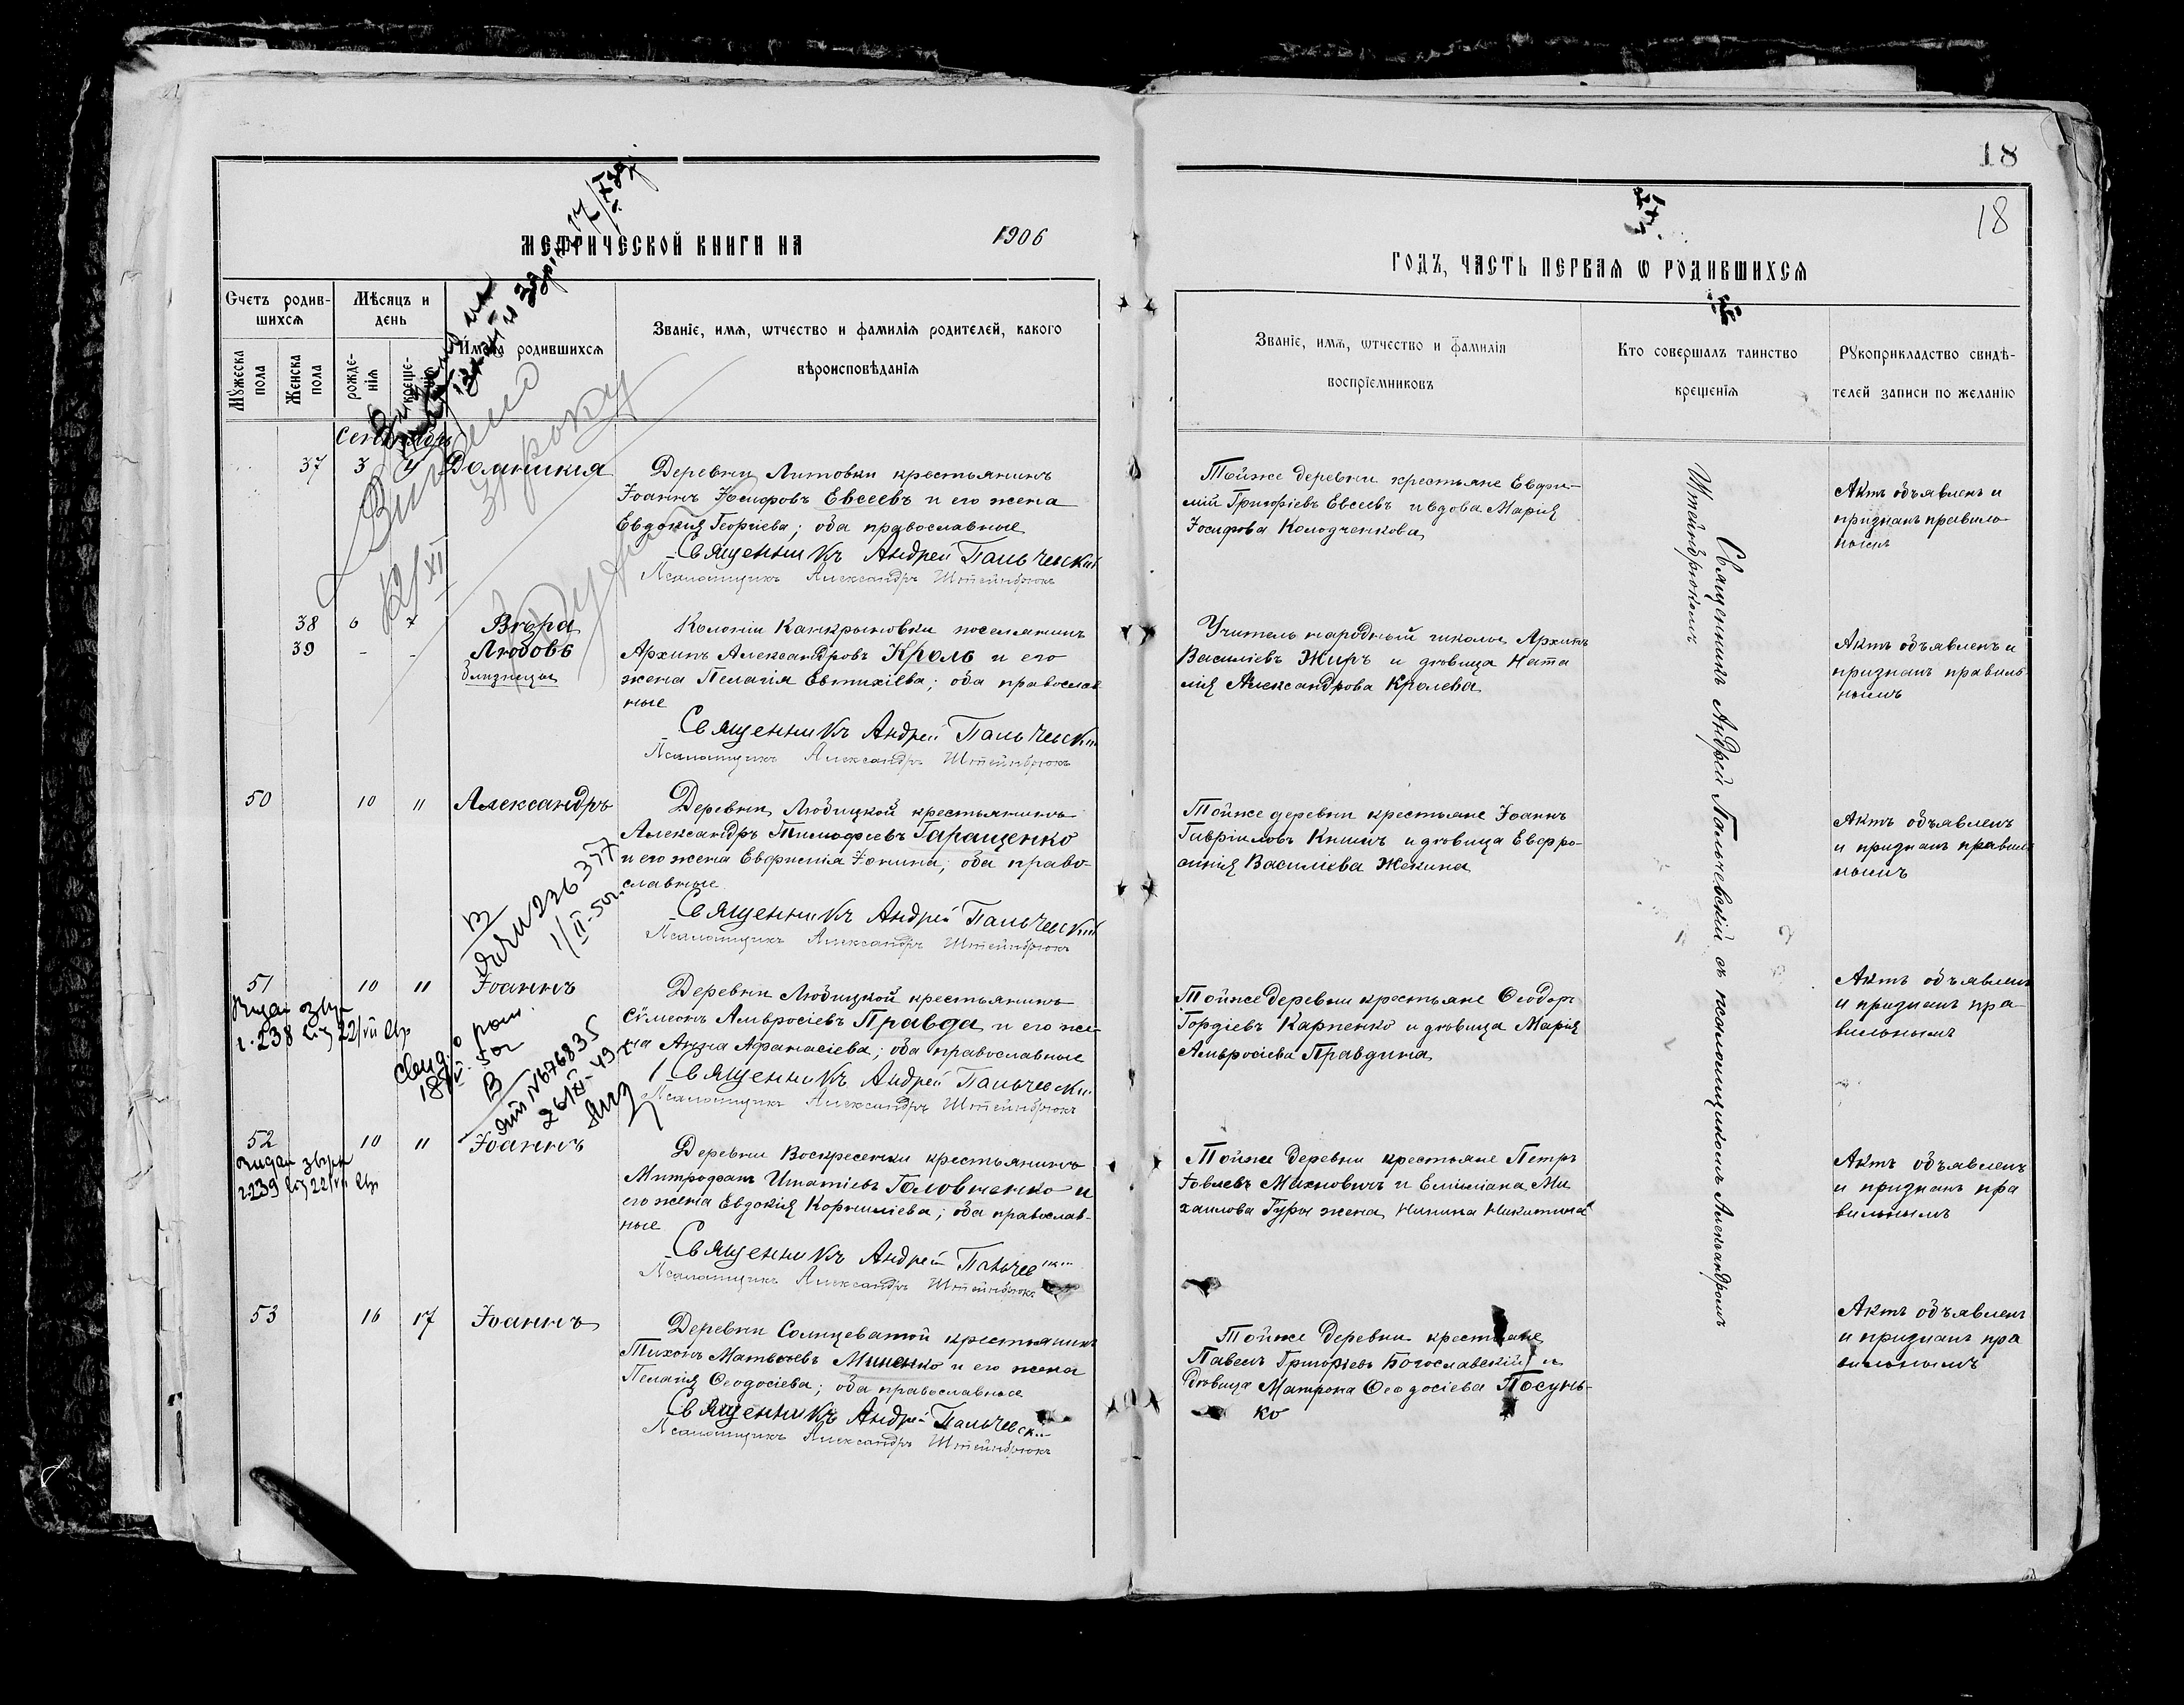 18
18
МЕТРИЧЕСКОЙ КНИГИ НА 1906
ГОДЪ, ЧАСТЬ ПЕРВАЯ Ѡ РОДИВШИХСЯ
Счетъ родив-
шихся
Мѣсяцъ и
день
Мужеска
пола
Женска
пола
рожде-
нія
креще-
нія
Имена родившихся
Званіе, имя, ѡтчество и фамилія родителей, какого
вѣроисповѣданія
Званіе, имя, ѡтчество и фамилія
воспріемниковъ
Кто совершалъ таинство
крещенія
Рукоприкладство свидѣ-
телей записи по желанію
Сентябрь
37 3 4 Домникія
Деревни Литовки крестьянинъ
Іоаннъ Іосифовъ Евсеевъ и его жена
Евдокія Георгіева; оба православные
Священникъ Андрей Пальчевскій
Псаломщикъ Александръ Штейнбрюкъ
Тойже деревни крестьяне Евфи-
мій Григоріевъ Евсеевъ и вдова Марія
Іосифова Колодченкова
Актъ объявленъ и
признанъ правиль-
нымъ
38 6 7 Вѣра
39 - - Любовь
близнецы
Колоніи Канкриновки поселянинъ
Архипъ Александровъ Кроль и его
жена Пелагія Евтихіева; оба православ
ные
Священникъ Андрей Пальчевскій
Псаломщикъ Александръ Штейнбрюкъ
Учитель народной школы Архипъ
Василіевъ Жиръ и дѣвица Ната
лія Александрова Кролева
Актъ объявленъ и
признанъ правиль
нымъ
50 10 11 Александръ
Деревни Любицкой крестьянинъ
Александръ Тимофеевъ Гаращенко
и его жена Евфимія Іонина; оба право-
славные
Священникъ Андрей Пальчевскій
Псаломщикъ Александръ Штейнбрюкъ
Тойже деревни крестьяне Іоаннъ
Гавріиловъ Книшъ и дѣвица Евфро-
синія Василіева Жекина
Актъ объявленъ
и признанъ правиль
нымъ
226377
1/II-50г.
51 10 11 Іоаннъ
Деревни Любицкой крестьянинъ
Сѵмеонъ Амвросіевъ Правда и его же-
на Анна Афанасіева; оба православные
Священникъ Андрей Пальчевскій
Псаломщикъ Александръ Штейнбрюкъ
Тойже деревни крестьяне Ѳеодоръ
Гордіевъ Карпенко и дѣвица Марія
Амвросіева Правдина
Актъ объявленъ
и признанъ пра-
вильнымъ
№676835
26/XI-49г.
52 10 11 Іоаннъ
Деревни Воскресенки крестьянинъ
Митрофанъ Игнатіевъ Головченко и
его жена Евдокія Корниліева; оба православ-
ные
Священникъ Андрей Пальчевскій
Псаломщикъ Александръ Штейнбрюкъ
Тойже деревни крестьяне Петръ
Іовлевъ Михновичъ и Емиліана Ми
хаилова Гуры жена Нинила Никитина
Актъ объявленъ
и признанъ пра
вильнымъ
53 16 17 Іоаннъ
Деревни Солнцеватой крестьянинъ
Тихонъ Матвѣевъ Миненко и его жена
Пелагія Ѳеодосіева; оба православные
Священникъ Андрей Пальчевскій
Псаломщикъ Александръ Штейнбрюкъ
Тойже деревни крестьяне
Павелъ Григоріевъ Богославскій и
дѣвица Матрона Ѳеодосіева Посунь-
ко
Актъ объявленъ
и признанъ пра
вильнымъ
Священникъ Андрей Пальчевскій съ псаломщикомъ Александромъ
Штейнбрюкомъ